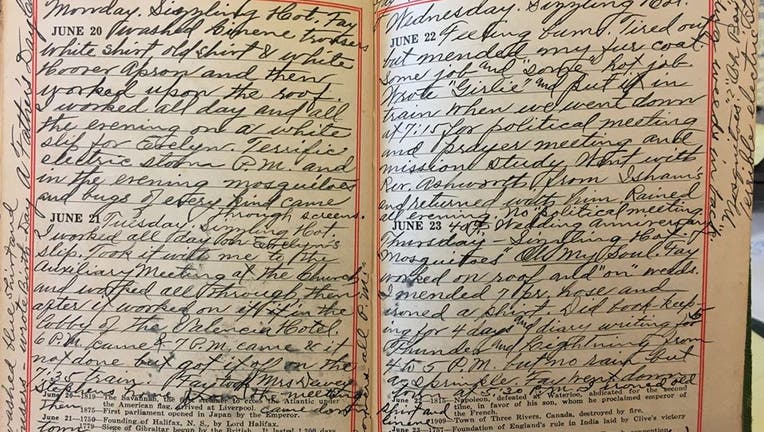 Monday. Sizzling Hot. Fay
JUNE 20 Washed Genene trousers
White shirt old shirt & white
Hoover Apron and then
worked upon the roof
I worked all day and all
the evening on a white
slip for Evelyn. Terrific
electric storm P.M. and
in the evening mosquitoes
and bugs of every kind came
through screens.
JUNE 21 Tuesday Sizzling Hot.
I worked all day on Evelyn's
slip. Took it with me to the
Auxiliary Meeting at the Church
and worked all through, then
after I worked on it in the
lobby of the Valencia Hotel
6 P.M. came & 7 P.M. came & it
not done but got it off on the
7:35 train. Fay took Mrs Dewey
the meeting
came down
June 20—1819—The Savannah, the first to cross the Atlantic under
the American flag, arrived at Liverpool.
1875—First parliament opened in Japan by the Emperor.
1750—Founding of Halifax, N. S., by Lord Halifax.
1779—Siege of Gibraltar
Wednesday. Sizzling Hot.
JUNE 22 Feeling bum. Tired out
but mended my fur coat.
Some job and "some" hot job
Wrote "Girlie" and put it in
train when we went down
at 7:15 for political meeting
and prayer meeting and
mission study. Went with
Rev. Ashworth from Isham's
and returned with him Rained
all evening. No political meeting.
JUNE 23 40th Wedding Anniversary
Thursday - Sizzling Hot
Mosquitoes Oh My Soul. Fay
worked on roof and "on" weeds.
I mended 7 pr. hose and
ironed a shirt. Did book keep-
ing for 4 days and diary writing for
Thunder and Lightning from
4 to 5 P.M. but no rain but
a sprinkle. Fay
at 5:20 P.M. I ironed old
shirt and
June 22—1815—Napoleon, defeated at Waterloo, abdicated for the second
time, in favor of his son, whom he proclaimed emperor of
French.
1909—Town of Three Rivers, Canada, destroyed by fire.
1757—Foundation of England's rule in India laid by Clive's victory
Father's Day
wrote Birth Day
Washed blue shirt and
all P.M.
Mosquitoes? Oh Boy